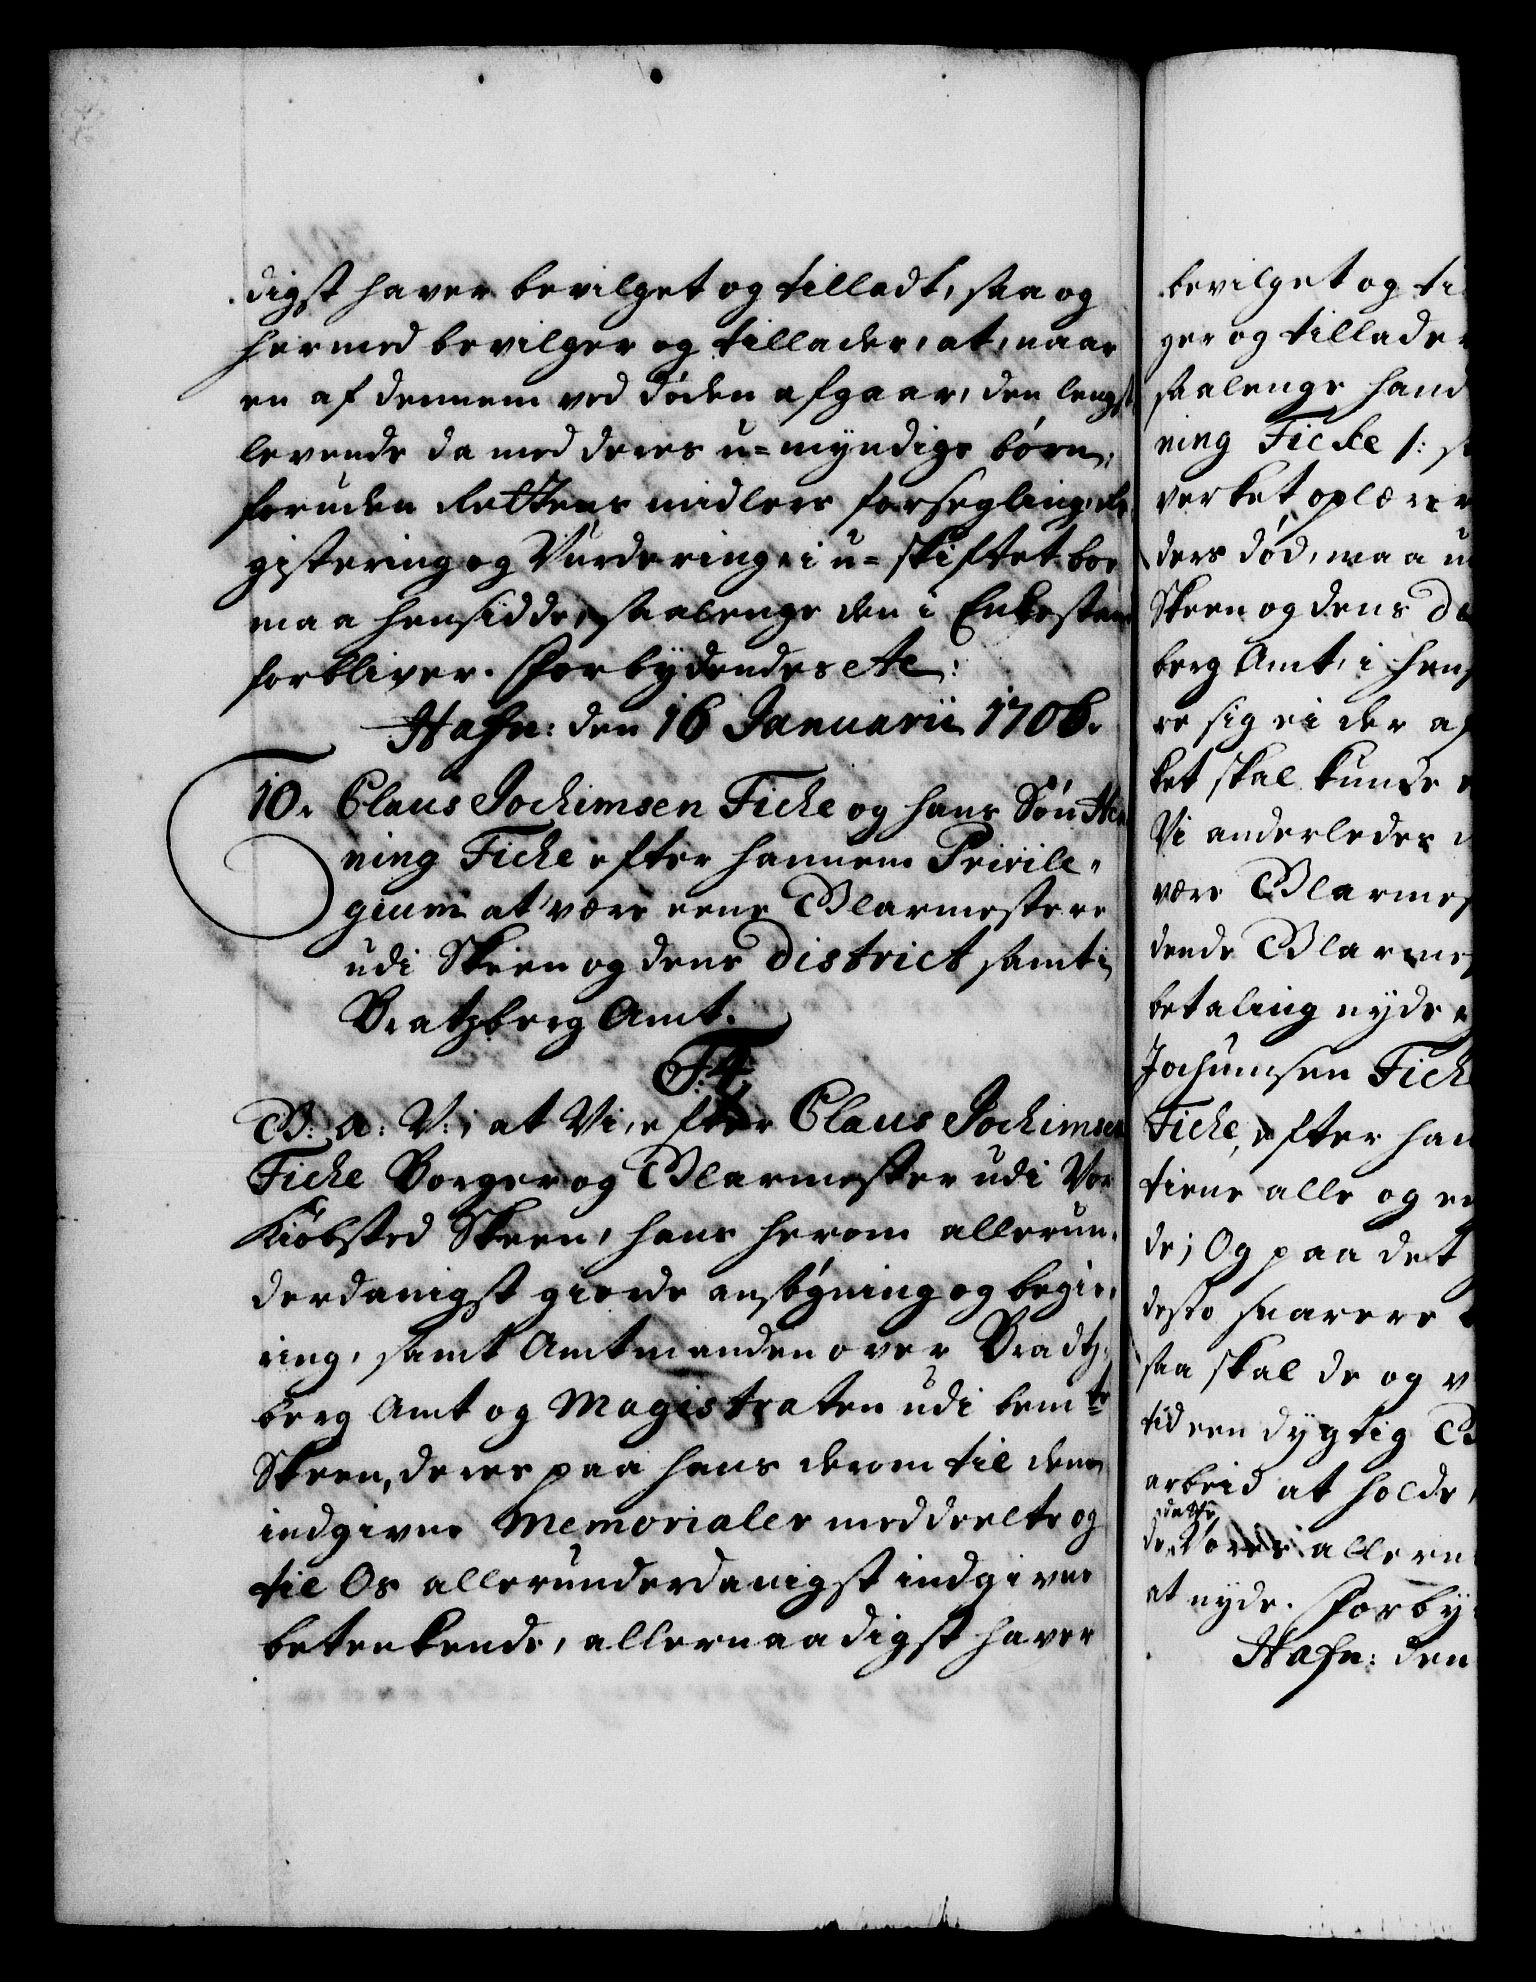 digst haver bevilget og tilladt, saa og
hermed bevilger og tillader, at, naar
en af dennem ved døden afgaar, den lengst
levende da med deres u=myndige børn,
foruden Rettens midlers forsegling, Re
gistering og Vurdering, i u=skiftet boe
maa hensidde, saalenge den i Enkestand
forbliver. Forbydendes etc:
Hafn: den 16 Januarii 1706.
10. Claus Jochimsen Ficke og hans Søn Hen
ning Ficke efter hannem Privile,
gium at være eene Glarmestere
udi Skeen og dens District samt i
Bratzberg Amt.
F. 4.
G: A: V:, at Vi, efter Claus Jochimsen
Ficke Borger og Glarmester udi Vor
Kiøbsted Skeen, hans herom allerun,
derdanigst giorde ansøgning og begie,
ring, samt Amtmanden over Bradtz,
berg Amt og Magistraten udi bemte
Skeen, deres paa hans derom til dem
indgivne Memorialer meddeelte og
til Os allerunderdanigst indgivne
betenkende, allernaadigst haver
bevilget og ti
ger og tillade
saalenge hand
ning Ficke /: s
verket oplære
ders død, maa u
Skeen og dens D
berg Amt, i hen
re sig ei der a
ket skal kunde
Vi anderledes
være Glarmes
dende Glarmes
betaling nyde
Jochumsen Fick
Ficke, efter han
tiene alle og en
de; Og paa det
desto snarere
saa skal de og v
tid een dygtig G
arbeid at holde,
dette
de Vores allern
at nyde. Forby
Hafn: den